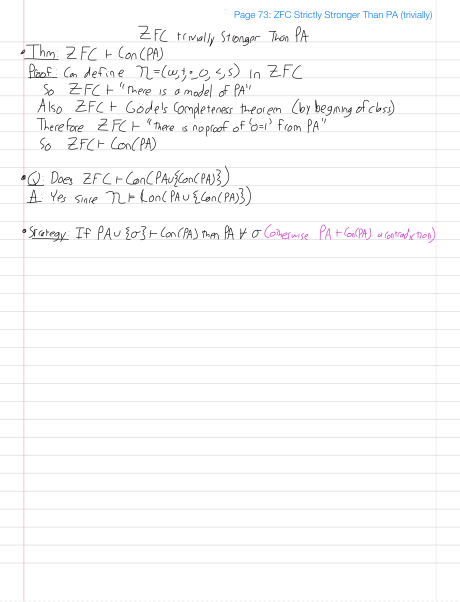 Page 73: ZFC Strictly Stronger Than PA (trivially)
ZFC trivially Stronger Than PA
• Thm: ZFC ⊢ Con(PA)
Proof: Can define 𝔑=(ω,+,·,0,<,s) in ZFC
So ZFC ⊢ "there is a model of PA"
Also ZFC ⊢ Godel's Completeness theorem (by begining of class)
Therefore ZFC ⊢ "there is no proof of '0=1' from PA"
So ZFC ⊢ Con(PA)
• Q: Does ZFC ⊢ Con(PA∪{Con(PA)})
A: Yes since 𝔑 ⊨ Con(PA ∪ {Con(PA)})
• Strategy: If PA ∪ {σ} ⊢ Con(PA) then PA ⊬ σ (otherwise PA ⊢ Con(PA) a contradiction)